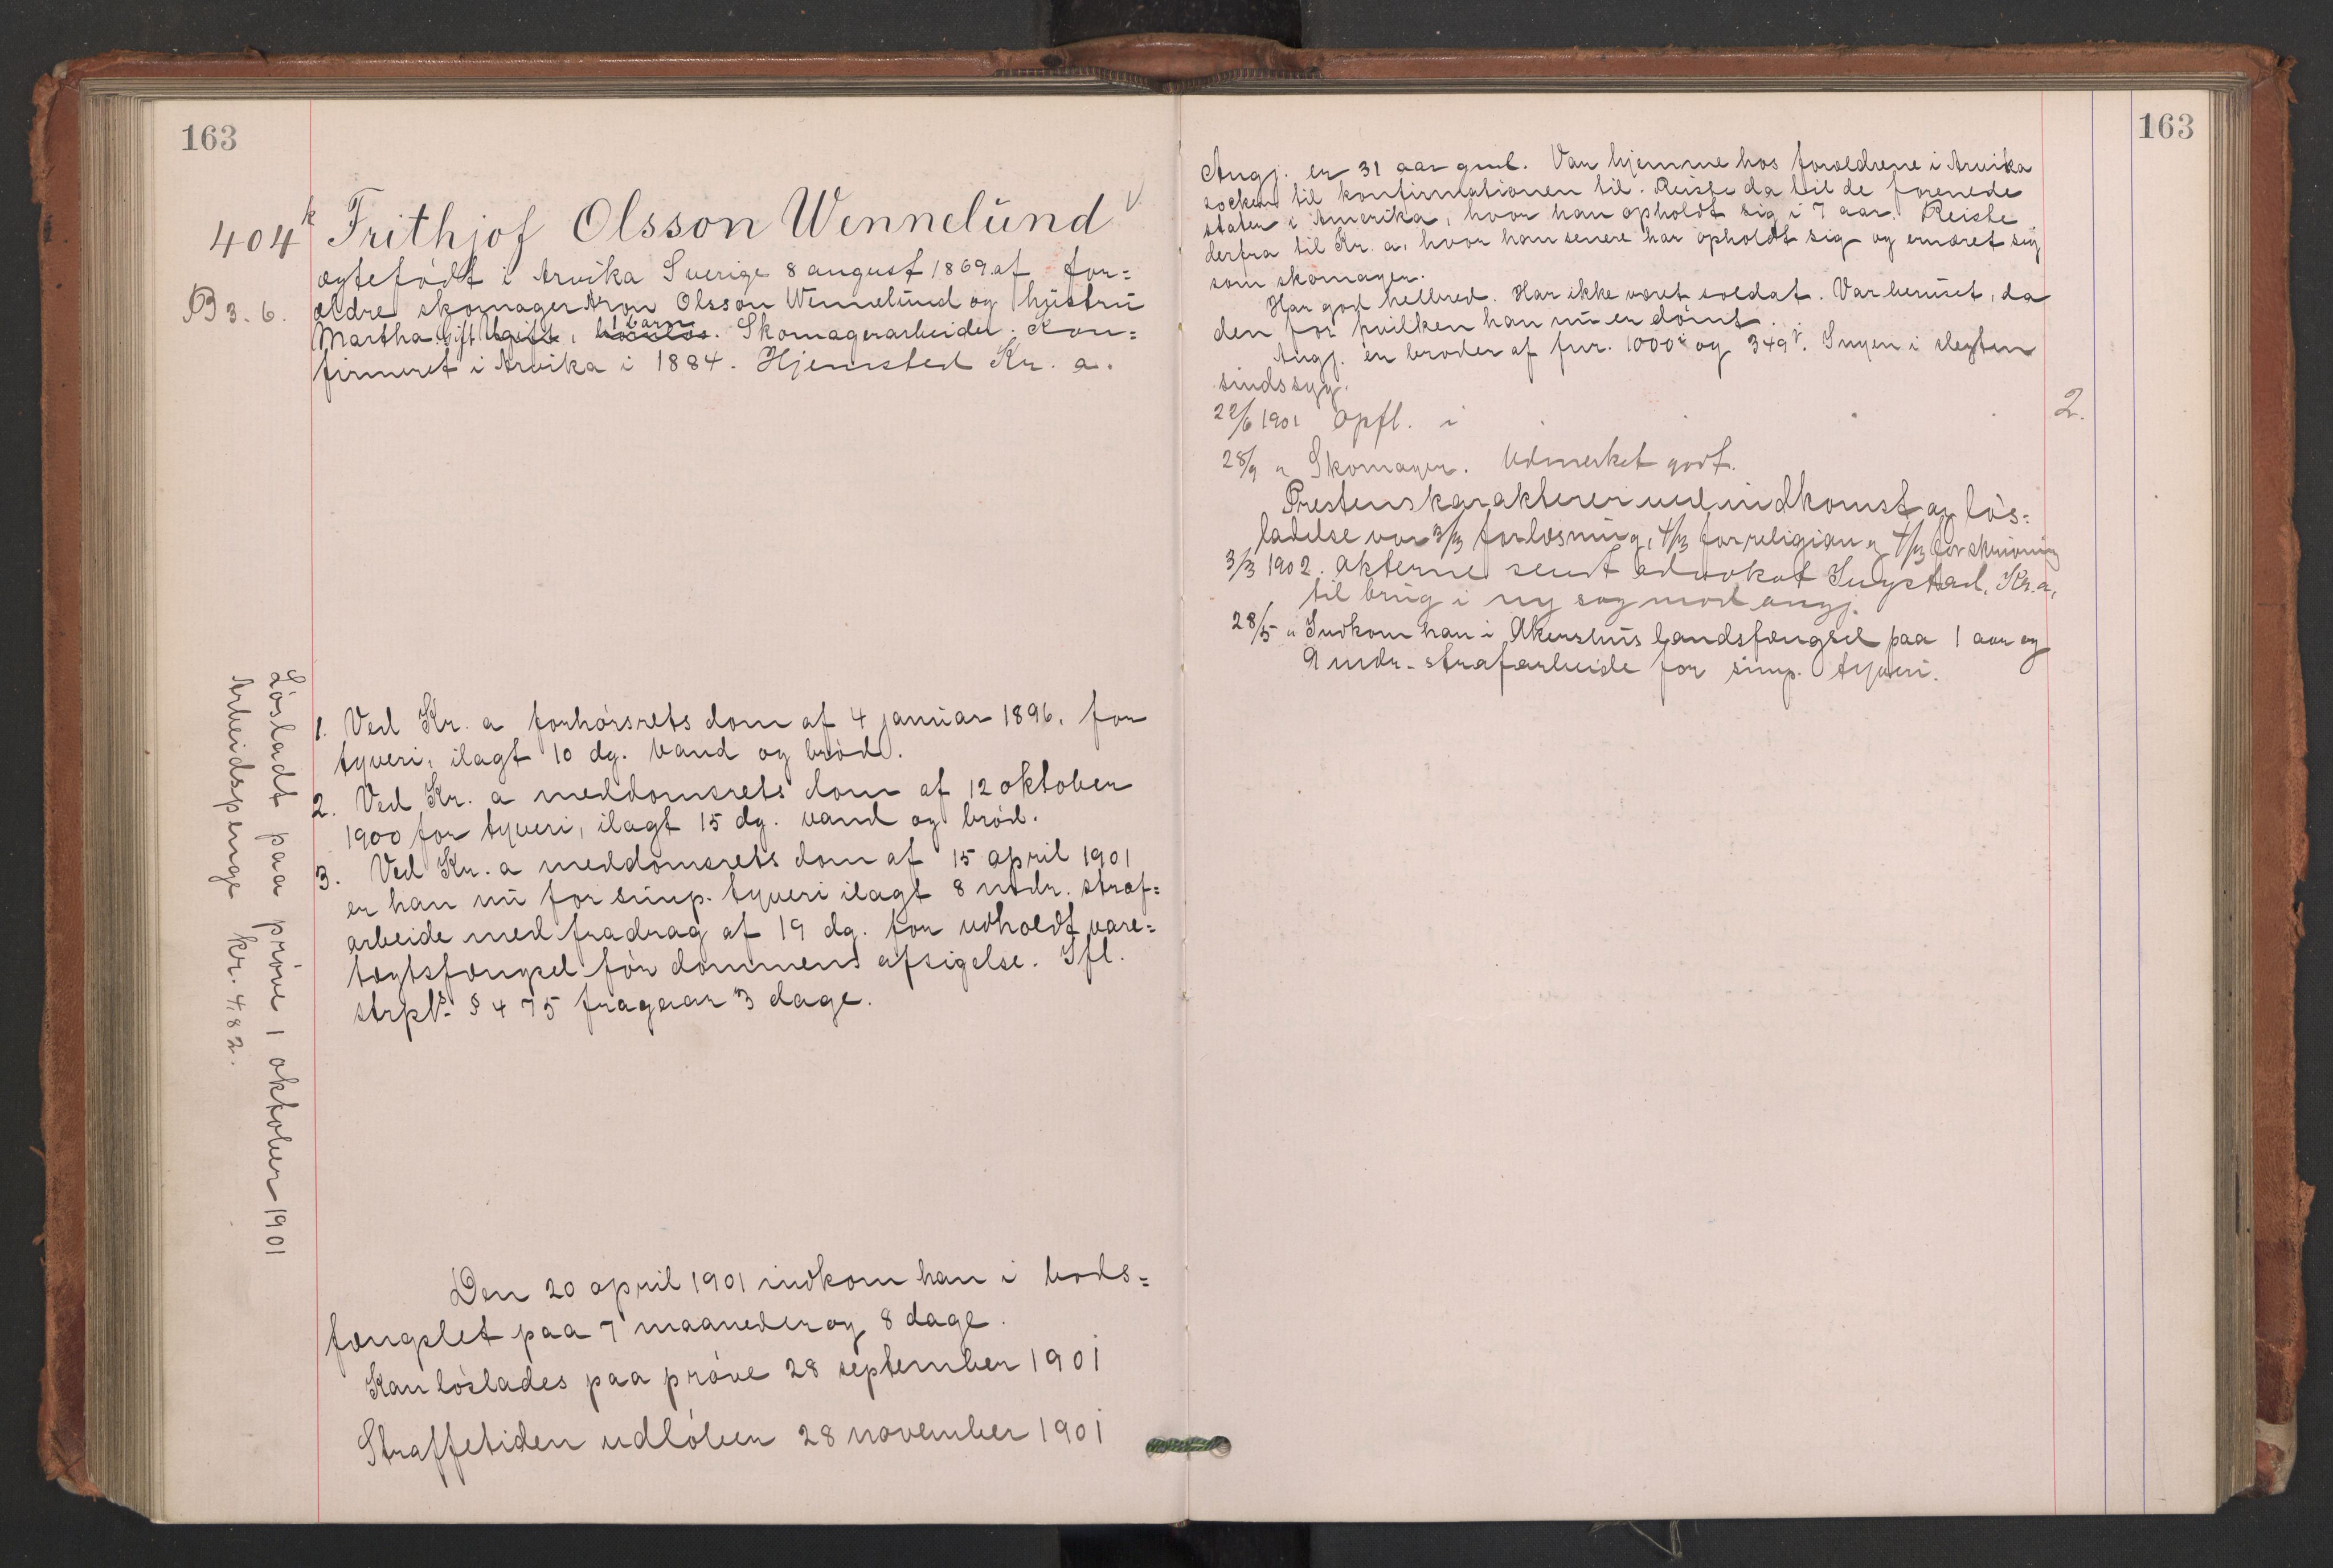 163
404k Frithjof Olsson Wennelund v
ægtefødt i Arvika Sverige 8 august 1869 af for=
B 3. 6. ældre skomager Aron Olsson Wennelund og hustru
Martha. Gift Ugift, 1 barn barnløs. Skomagerarbeider. Kon=
firmeret i Arvika i 1884. Hjemsted Kr. a.
1. Ved Kr. a forhørsrets dom af 4 januar 1896. for
tyveri, ilagt 10 dg. vand og brød.
2. Ved Kr. a meddomsrets dom af 12 oktober
1900 for tyveri, ilagt 15 dg. vand og brød.
3. Ved Kr. a meddomsrets dom af 15 april 1901
er han nu for simp. tyveri ilagt 8 mdr. straf=
arbeide med fradrag af 19 dg. for udholdt vare=
tægtsfængsel før dommens afsigelse. Ifl.
strpl § 475 fragaar 3 dage.
Løsladt paa prøve 1 oktober 1901
Arbeidspenge kr. 4,82.
Den 20 april 1901 indkom han i bods=
fængslet paa 7 maaneder og 8 dage.
Kan løslades paa prøve 28 september 1901
Straffetiden udløber 28 november 1901
163
Angj. er 31 aar gml. Var hjemme hos forældrene i Arvika
socken til konfirmationen til. Reiste da til de forenede
stater i Amerika, hvor han opholdt sig i 7 aar. Reiste
derfra til Kr. a, hvor han senere har opholdt sig og ernæret sig
som skomager.
Har god helbred. Har ikke været soldat. Var beruset, da
den for hvilken han nu er dømt.
Angj. er broder af fnr. 1000 og 349. Ingen i slegten
sindssyg.
22/6 1901 Opfl. i 2.
28/9 " Skomager. Udmerket godt.
Prestens karakterer ved indkomst og løs=
ladelse var 3/3 for læsning, 4/3 for religion og 4/3 for skrivning
3/3 1902. Akterne sendt advokat Ingstad, Kr. a,
til brug i ny sag mod angj.
28/5 " Indkom han i Akershus landsfængsel paa 1 aar og
9 mdr. strafarbeide for simp. tyveri.